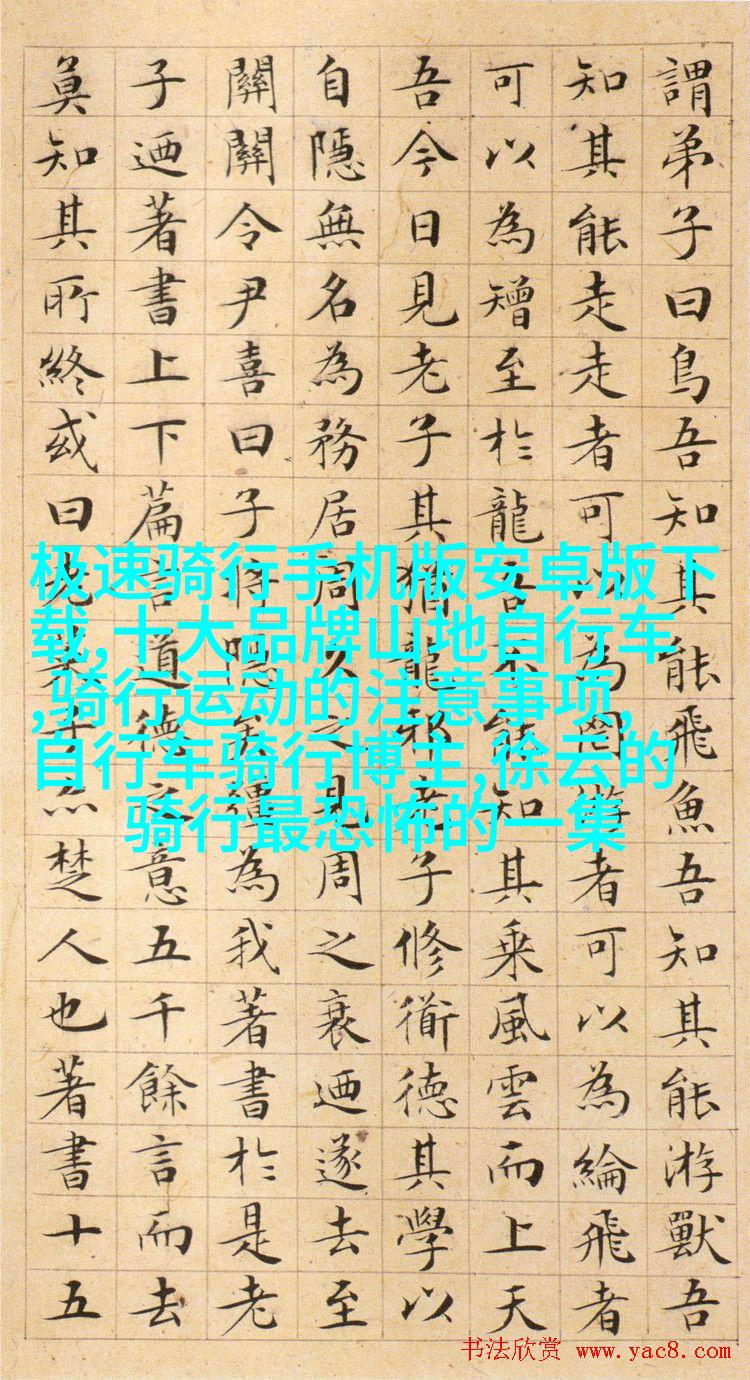 謂弟子曰鳥吾知其能飛魚吾知其能游獸吾
知其能走走者可以為罔游者可以為綸飛者
可以為矰至於龍吾不能知其乘風雲而上天
吾今日見老子其猶龍邪老子修衜德其學以
自隱無名為務居周久之見周之衰迺遂去至
關關令尹喜曰子將隱矣彊為我著書於是老
子迺著書上下篇言道德之意五千餘言而去
莫知其所終或曰老萊子亦楚人也著書十五
极速骑行手机版安卓版下
载,十大品牌山地自行车
,骑行运动的注意事项,
自行车骑行博主,徐云的
骑行最恐怖的一集
书法欣赏 www.yac8.com